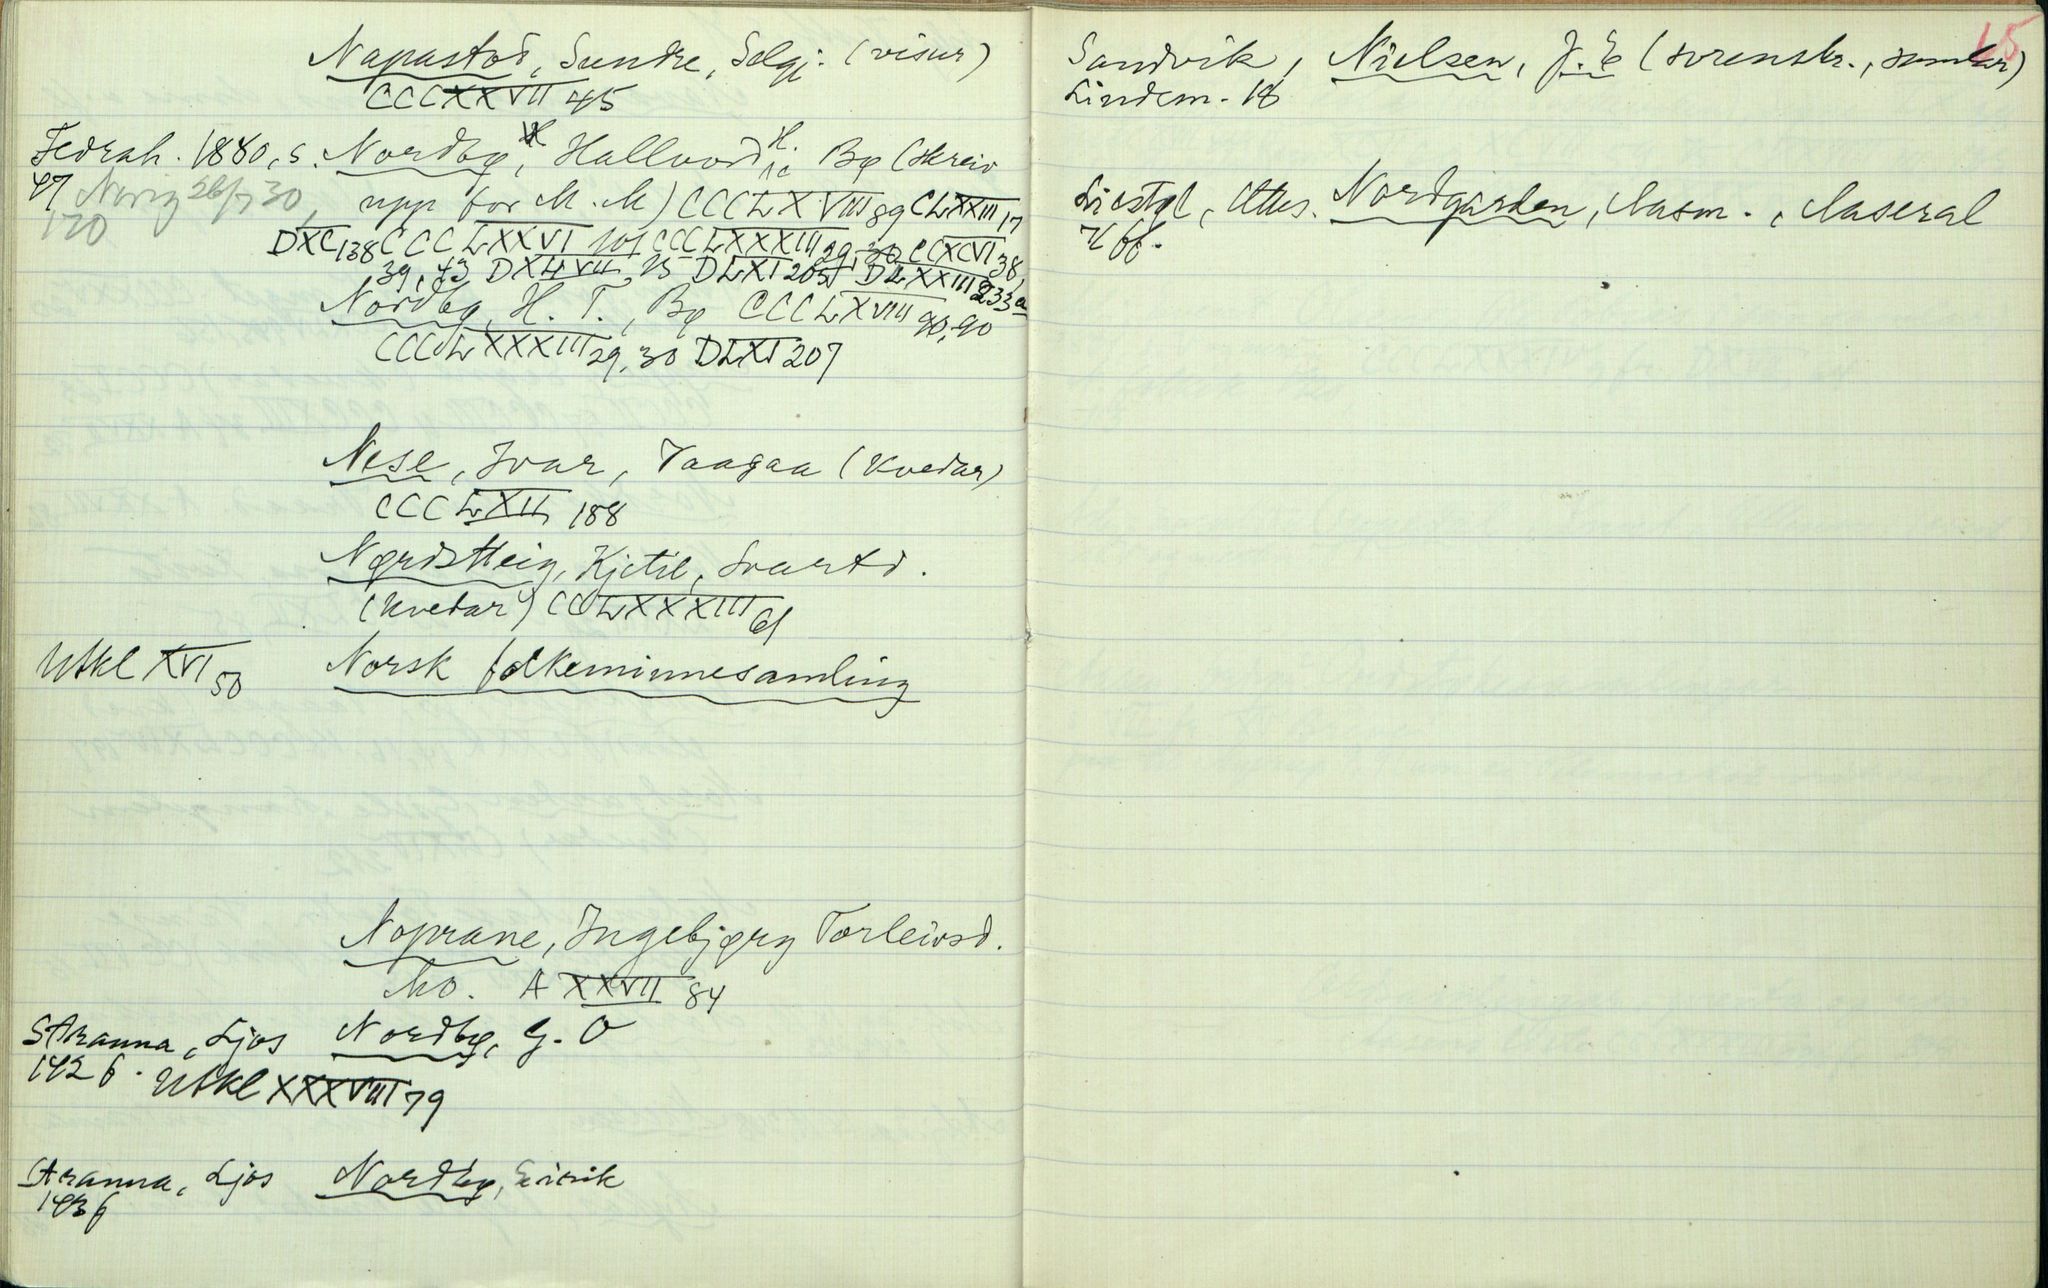 Napastod, Sundre, Selgj. (visur)
CCCXXVII 45
Fedrah. 1880, s. Nordbø, Hallvord H. Bø (skreiv
47 Norig 26/7 30, upp for M. M) CCCLXVIII 89 CLXXIII 17
120
DXC 138 CCCLXXVI 101 CCCLXXXIII 29, 30 CCXCVI 38,
39, 43 DXLVII 15 DLXI 205 DLXXIII 233a
Nordbø, H. T., Bø CCCLXVIII 90, 90
CCCLXXXIII 29, 30 DLXI 207
Nese, Ivar, Vaagaa (kvedar)
CCCLXII 188
Nørdstteig, Kjetil, Svartd.
(kvedar) CCLXXXIII 61
Utkl XVI 50 Norsk folkeminnesamling
Noprane, Ingebjørg Torleivsd.
Mo. A XXVII 84
Stranna, Ljos Nordbø, G. O
142 f. Utkl XXXVIII 79
Stranna, Ljos Nordbø, Eirik
143 f
15
Sandvik, Nielsen, J. E (sorenskr., samlar)
Lindem. 18
Liestøl, Utus. Nordgarden, Aasm., Aaseral
4 ff.